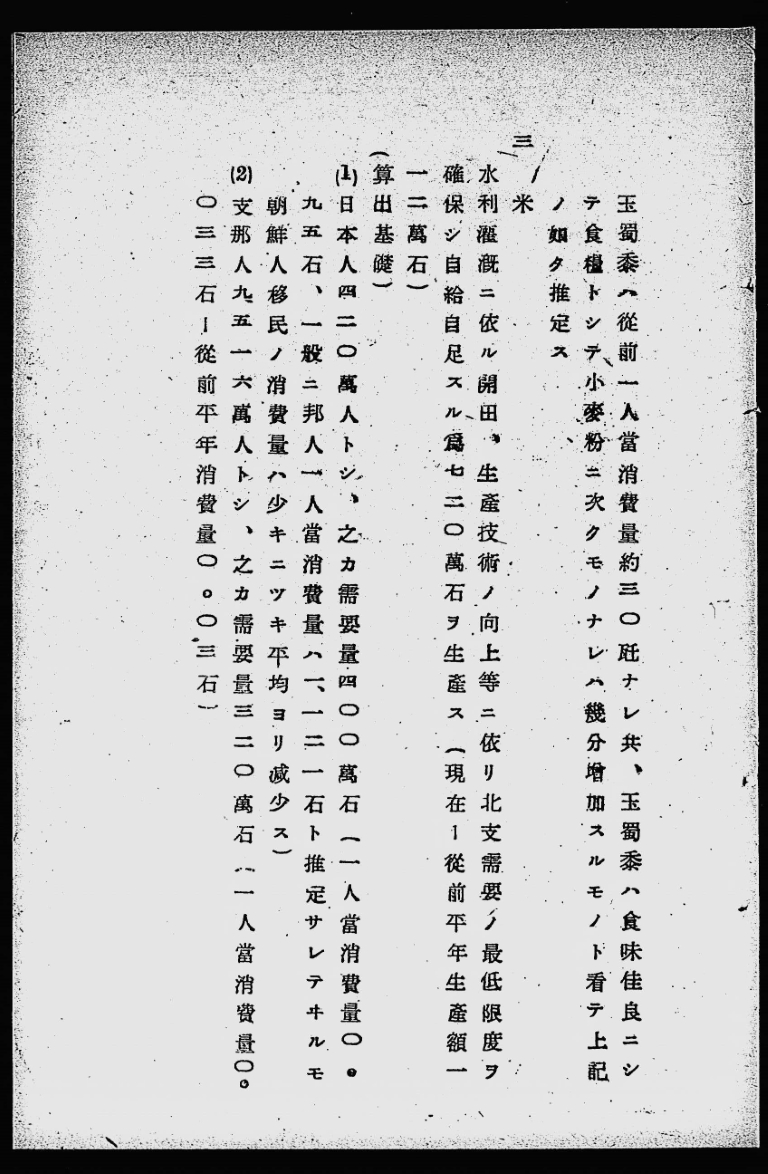 玉蜀黍ハ從前一人當消費量約三〇瓩ナレ共、玉蜀黍ハ食味佳良ニシ
テ食糧トシテ小麥粉ニ次クモノナレハ幾分增加スルモノト看テ上記
ノ如ク推定ス
三、米
水利灌漑ニ依ル開田、生產技術ノ向上等ニ依リ北支需要ノ最低限度ヲ
確保シ自給自足スル爲七二〇萬石ヲ生產ス(現在ー從前平年生產額一
一二萬石)
(算出基礎)
(1)日本人四二〇萬人トシ、之カ需要量四〇〇萬石(一人當消費量〇。
九五石、一般ニ邦人一人當消費量ハ一、一二一石ト推定サレテヰルモ
朝鮮人移民ノ消費量ハ少キニツキ平均ヨリ減少ス)
(2)支那人九、五一六萬人トシ、之カ需要量三二〇萬石(一人當消費量〇。
〇三三石ー從前平年消費量〇。〇三石)